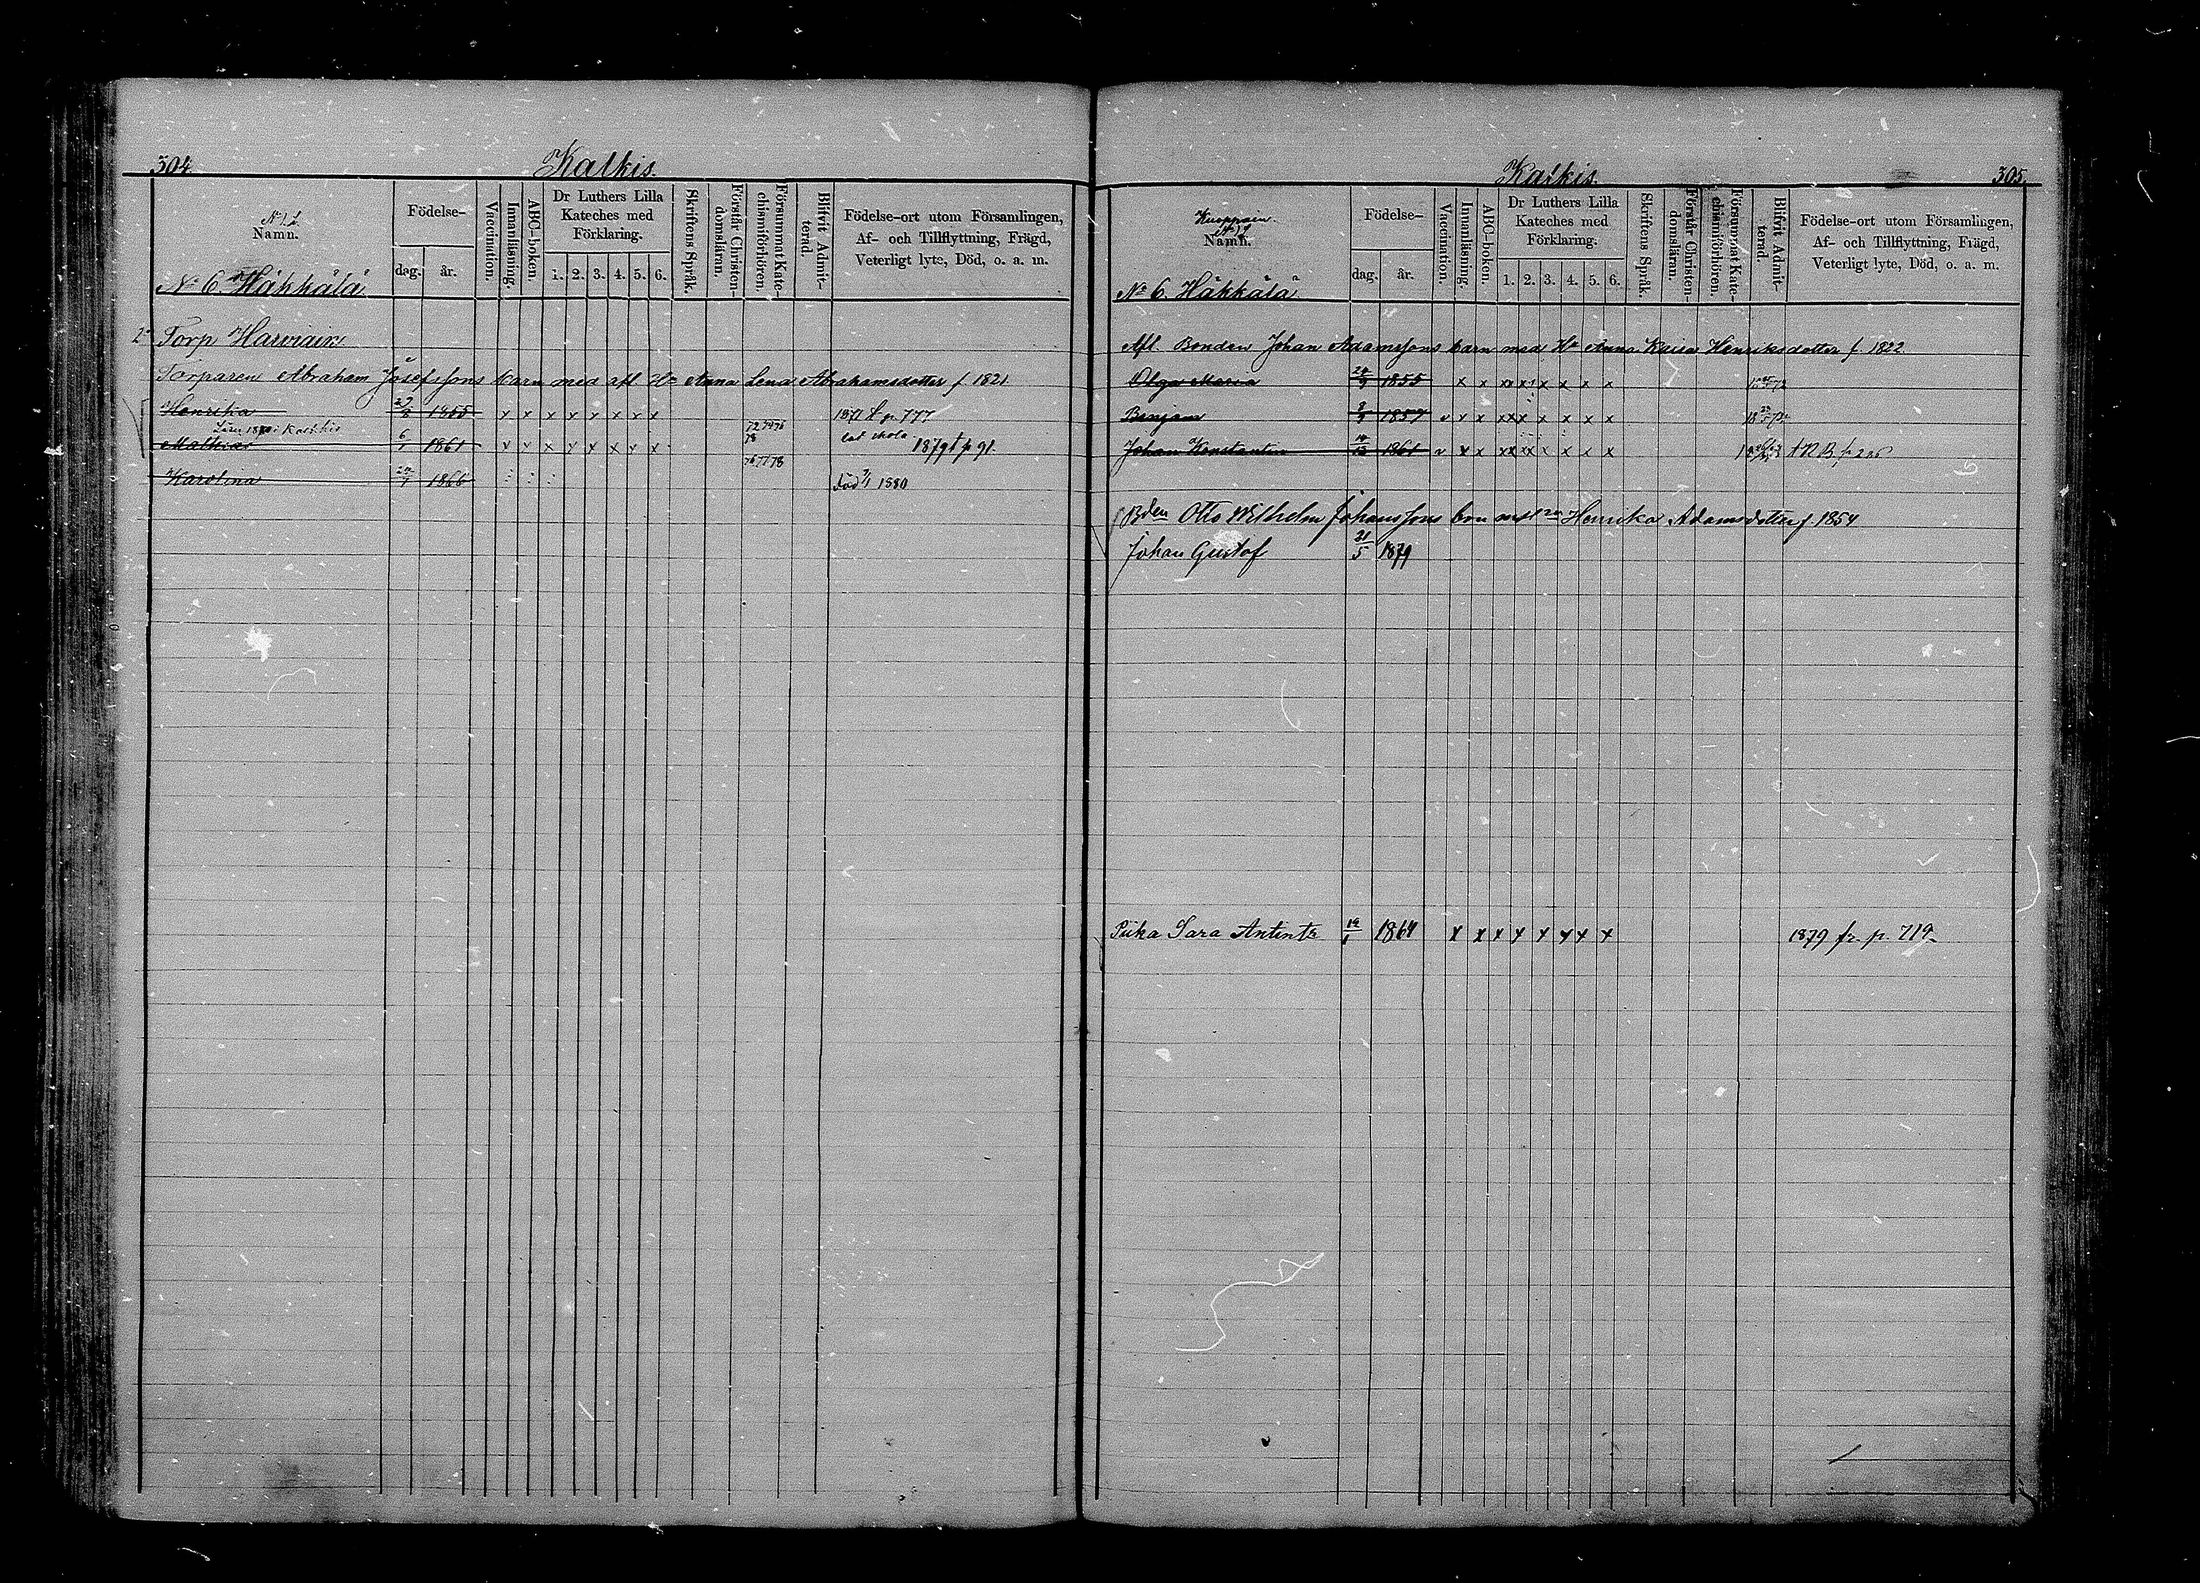 304
Katkis.
No 12
Namn.
Födelse-
dag.
år.
Vaccination.
Innanläsning.
ABC-boken.
Dr Luthers Lilla
Kateches med
Förklaring.
1. 2. 3. 4. 5. 6.
Skriftens Språk.
Förstår Christen-
domsläran.
Försummat Kate-
chismiförhören.
Blifvit Admit-
terad.
Födelse-ort utom Församlingen,
Af- och Tillflyttning, Frägd,
Veterligt lyte, Död, o. a. m.
No 6. Häkkälä
Torp
Torparen Abraham Josefssons barn med afl Hu Anna Lena Abrahamsdotter f 1821
Henrika 1855 x x x x x x x x
Mathias 6/1 1861 v v x x x x x x 1879 t p 91.
76 77 78
Karolina 1866 död 1880
Katkis.
305.
Namn.
Födelse-
dag.
år.
Vaccination.
Innanläsning.
ABC-boken.
Dr Luthers Lilla
Kateches med
Förklaring.
1. 2. 3. 4. 5. 6.
Skriftens Språk.
Förstår Christen-
domsläran.
Försummat Kate-
chismiförhören.
Blifvit Admit-
terad.
Födelse-ort utom Församlingen,
Af- och Tillflyttning, Frägd,
Veterligt lyte, Död, o. a. m.
No 6. Häkkälä
Afl. Bonden Johan Adamssons barn med Hu Anna Kaisa Henriksdotter f. 1822.
Olga Maria 1855
Benjam 1857
Johan Konstantin 1861
Bden Otto Wilhelm Johanssons Henrika Adamsdotter f 1854
Johan Gustaf 21/5 1879
Piika Sara 1864 x x x x x x x x 1879 fr. p. 719.